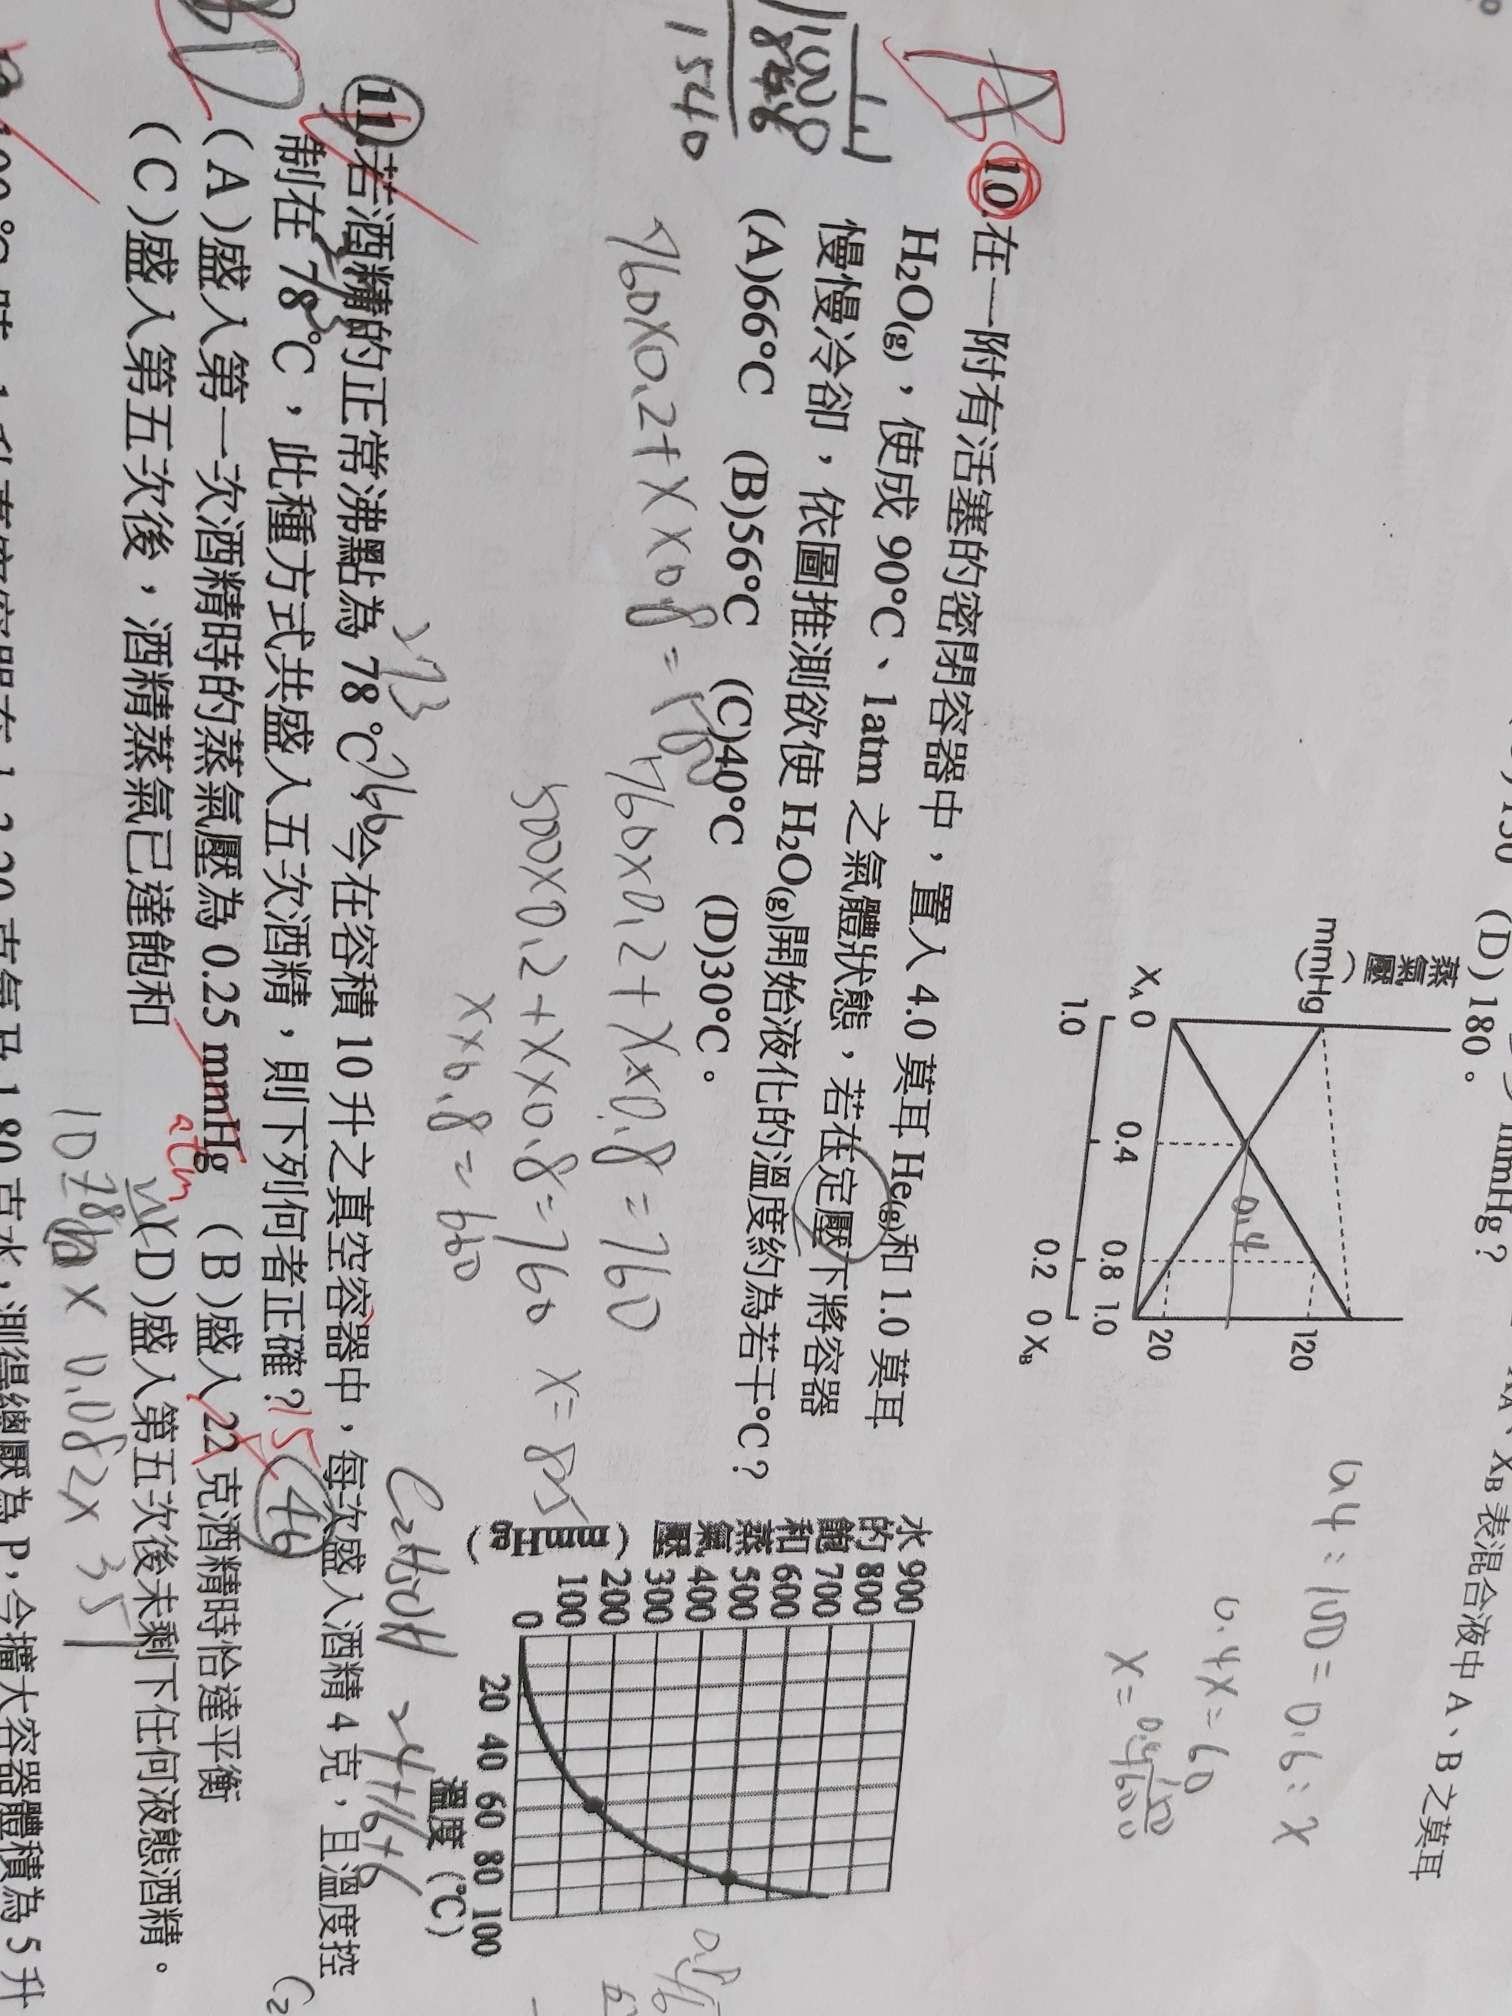 (D) 180。
mmHg?
X_B 表混合液中 A、B 之莫耳
蒸氣壓
(mmHg)
120
20
X_A 0 0.4 0.8 1.0
1.0 0.2 0 X_B
0.4
0.4 : 100 = 0.6 : x
0.4x = 60
10. 在一附有活塞的密閉容器中，置入 4.0 莫耳 He(g)和 1.0 莫耳
H₂O(g)，使成 90°C、1atm 之氣體狀態，若在定壓下將容器
慢慢冷卻，依圖推測欲使 H₂O(g)開始液化的溫度約為若干°C?
(A)66°C (B)56°C (C)40°C (D)30°C。
760×0.2+X×0.8=100
760×0.2+X×0.8=760
500×0.2+X×0.8=760
X×0.8=660
1540
水的飽和蒸氣壓(mmHg)
900
800
700
600
500
400
300
200
100
0
20 40 60 80 100
溫度(°C)
11 若酒精的正常沸點為 78 °C 今在容積 10 升之真空容器中，每次盛入酒精 4 克，且溫度控
制在 78 °C，此種方式共盛入五次酒精，則下列何者正確?
(A)盛入第一次酒精時的蒸氣壓為 0.25 mmHg (B)盛入 22 克酒精時恰達平衡
(C)盛入第五次後，酒精蒸氣已達飽和 (D)盛入第五次後未剩下任何液態酒精。
273
atm
15
46
C₂H₅OH
24+16+6
× 0.082× 351